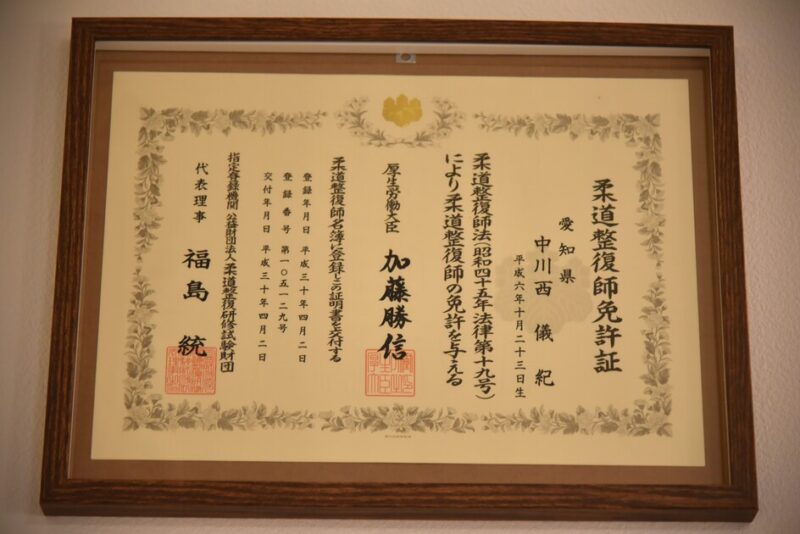 柔道整復師免許証
愛知県
中川西 儀紀
平成六年十月二十三日生
柔道整復師法(昭和四十五年法律第十九号)
により柔道整復師の免許を与える
厚生労働大臣 加藤勝信
柔道整復師名簿に登録しこの証明書を交付する
登録年月日 平成三十年四月二日
登録番号 第一〇五一二九号
交付年月日 平成三十年四月二日
指定登録機関 公益財団法人柔道整復研修試験財団
代表理事 福島 統